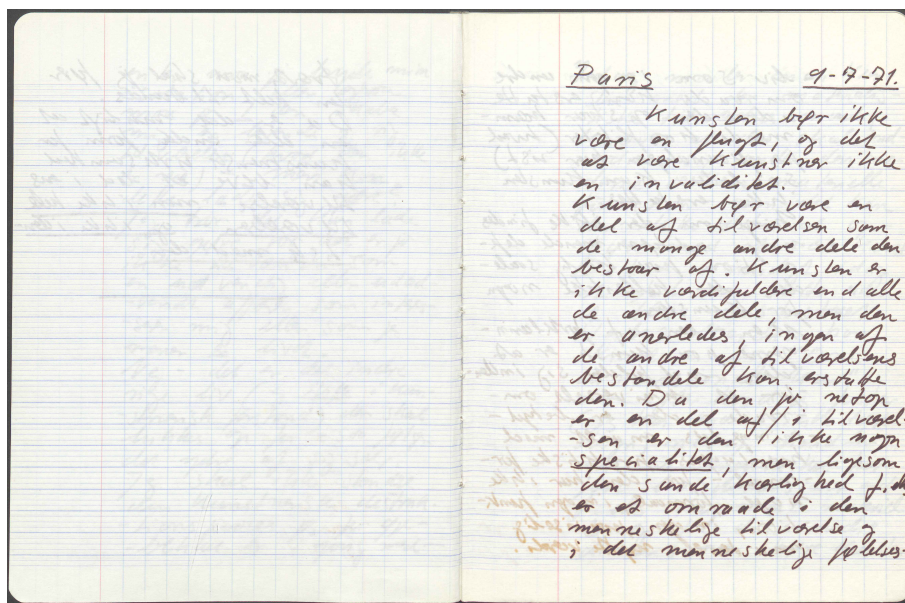 Paris 9-7-71.
Kunsten bør ikke
være en flugt, og det
at være kunstner ikke
en invaliditet.
Kunsten bør være en
del af tilværelsen som
de mange andre dele den
bestaar af. Kunsten er
ikke værdifuldere end alle
de andre dele, men den
er anerledes, ingen af
de andre af tilværelsens
bestandele kan erstatte
den. Da den jo netop
er en del af/i tilværel-
-sen er den ikke nogen
specialitet, men ligesom
den sande kærlighed f.eks
er et omraade i den
menneskelige tilværelse og
i det menneskelige følelses-